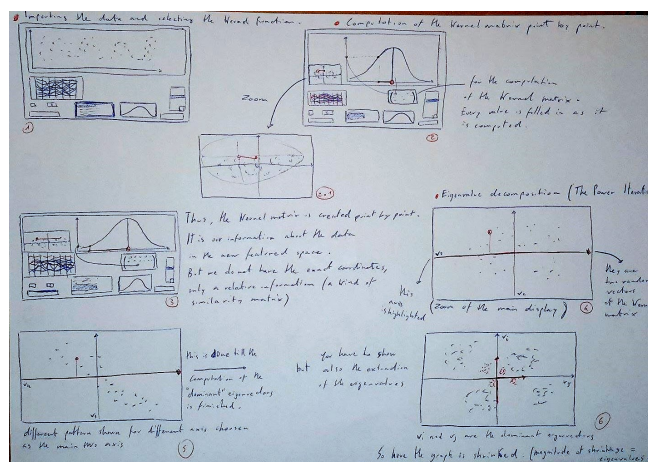 • Importing the data and selecting the Kernel function.
• Computation of the Kernel matrix point by point.
1
Zoom
2
for the computation
of the Kernel matrix.
Every value is filled in as it
is computed.
2.1
Thus, the Kernel matrix is created point by point.
It is our information about the data
in the new featured space.
But we do not have the exact coordinates,
only a relative information (a kind of
similarity matrix)
3
• Eigenvalue decomposition (The Power Iterati
this
axis
is highlighted
(Zoom of the main display)
4
they are
two random
vectors
of the Kernel
matrix
this is done till the
computation of the
"dominant" eigenvectors
is finished.
different pattern shown for different axis choosen
as the main two axis
5
but
you have to show
also the extraction
of the eigenvalues
6
vi and vj are the dominant eigenvectors
So here the graph is shrinked. (magnitude of shrinkage =
eigenvalues